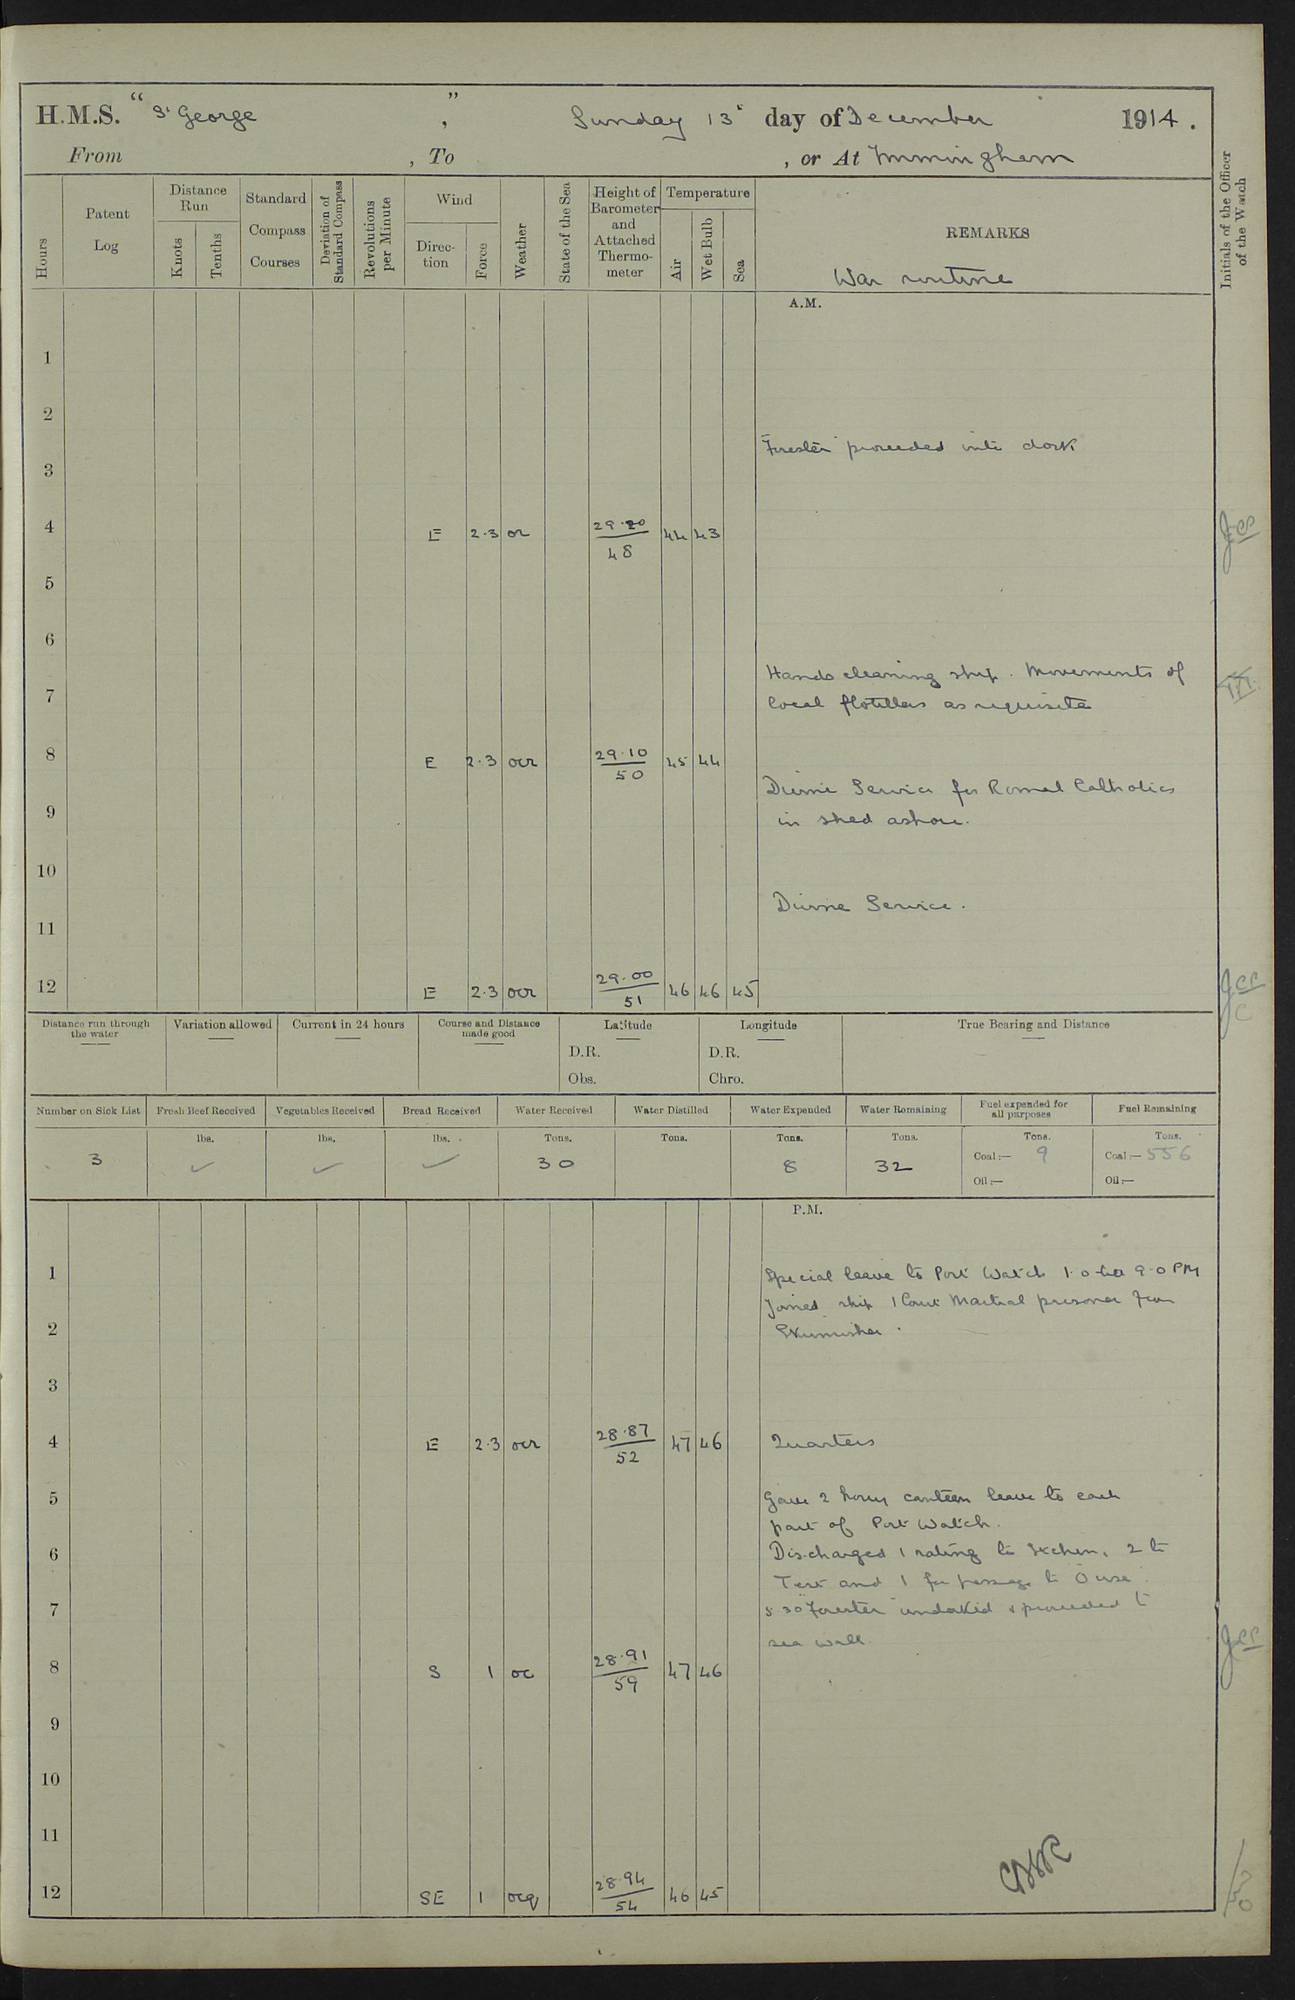 H.M.S. " St George , " Sunday 13th day of December 1914.
From , To , or At Immingham
Hours
Patent Log
Distance Run
Knots
Tenths
Standard Compass Courses
Deviation of Standard Compass
Revolutions per Minute
Wind
Direction
Force
Weather
State of the Sea
Height of Barometer and Attached Thermometer
Temperature
Air
Wet Bulb
Sea
REMARKS
War routine
Initials of the Officer of the Watch
A.M.
1
2
"Forester" proceeded into dock
3
4 E 2.3 or 29.20 / 48 44 43
5
6
Hands cleaning ship. Movements of
7 local flotillas as requisite
8 E 2.3 ocr 29.10 / 50 45 44
Divine Service for Roman Catholics
9 in shed ashore.
10
Divine Service.
11
12 E 2.3 ocr 29.00 / 51 46 46 45
Distance run through the water
Variation allowed
Current in 24 hours
Course and Distance made good
Latitude
D.R.
Obs.
Longitude
D.R.
Chro.
True Bearing and Distance
Number on Sick List
3
Fresh Beef Received
lbs.
✓
Vegetables Received
lbs.
✓
Bread Received
lbs.
✓
Water Received
Tons.
30
Water Distilled
Tons.
Water Expended
Tons.
8
Water Remaining
Tons.
32
Fuel expended for all purposes
Tons.
Coal:— 9
Oil:—
Fuel Remaining
Tons.
Coal:— 556
Oil:—
P.M.
1 Special leave to Port Watch 1.0 to 9.0 PM
Joined ship 1 Court Martial prisoner from
2 Skirmisher.
3
4 E 2.3 ocr 28.87 / 52 47 46 Quarters
5 Gave 2 hours canteen leave to each
part of Port Watch.
6 Discharged 1 rating to Itchen, 2 to
Test and 1 for passage to Ouse.
7 5.30 "Forester" undocked & proceeded to
sea wall.
8 S 1 oc 28.91 / 59 47 46
9
10
11
12 SE 1 ocq 28.94 / 54 46 45